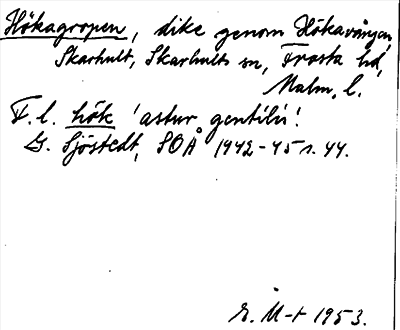 Hökagropen, dike genom Hökavången,
Skarhult, Skarhults sn, Frosta hd,
Malm. l.
F. l. hök 'astur gentilis'.
G. Sjöstedt, SOÅ 1942-45 s. 44.
1953.